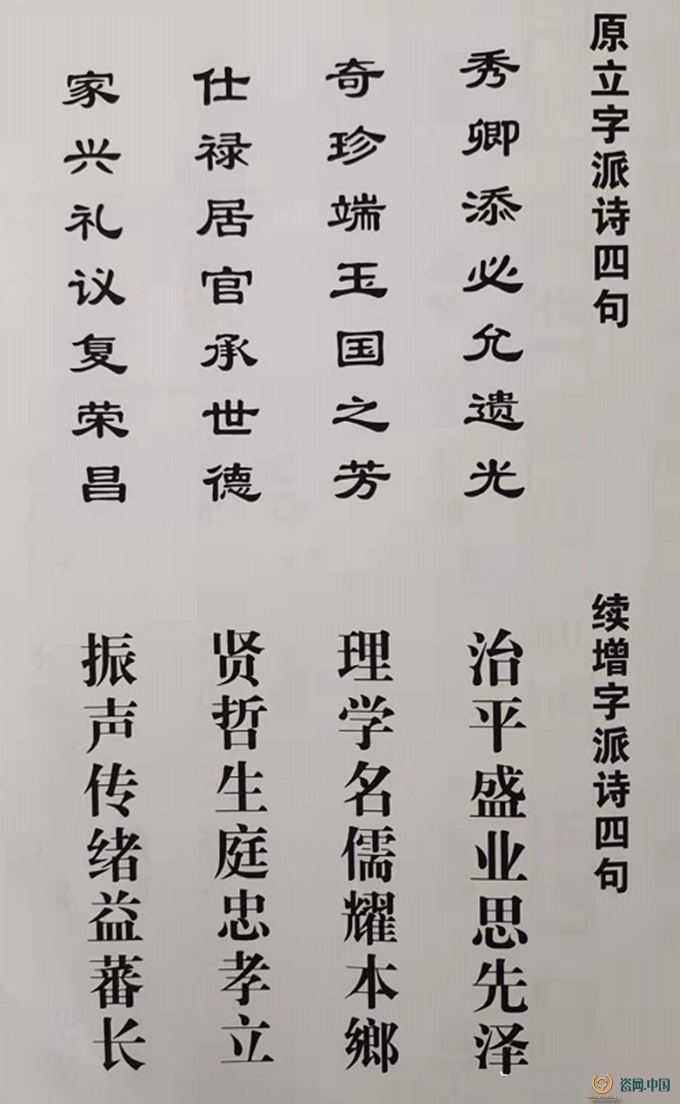 原立字派诗四句
秀卿添必允遗光
奇珍端玉国之芳
仕禄居官承世德
家兴礼议复荣昌
续增字派诗四句
治平盛业思先泽
理学名儒耀本鄉
贤哲生庭忠孝立
振声传绪益蕃长
瓷网.中国